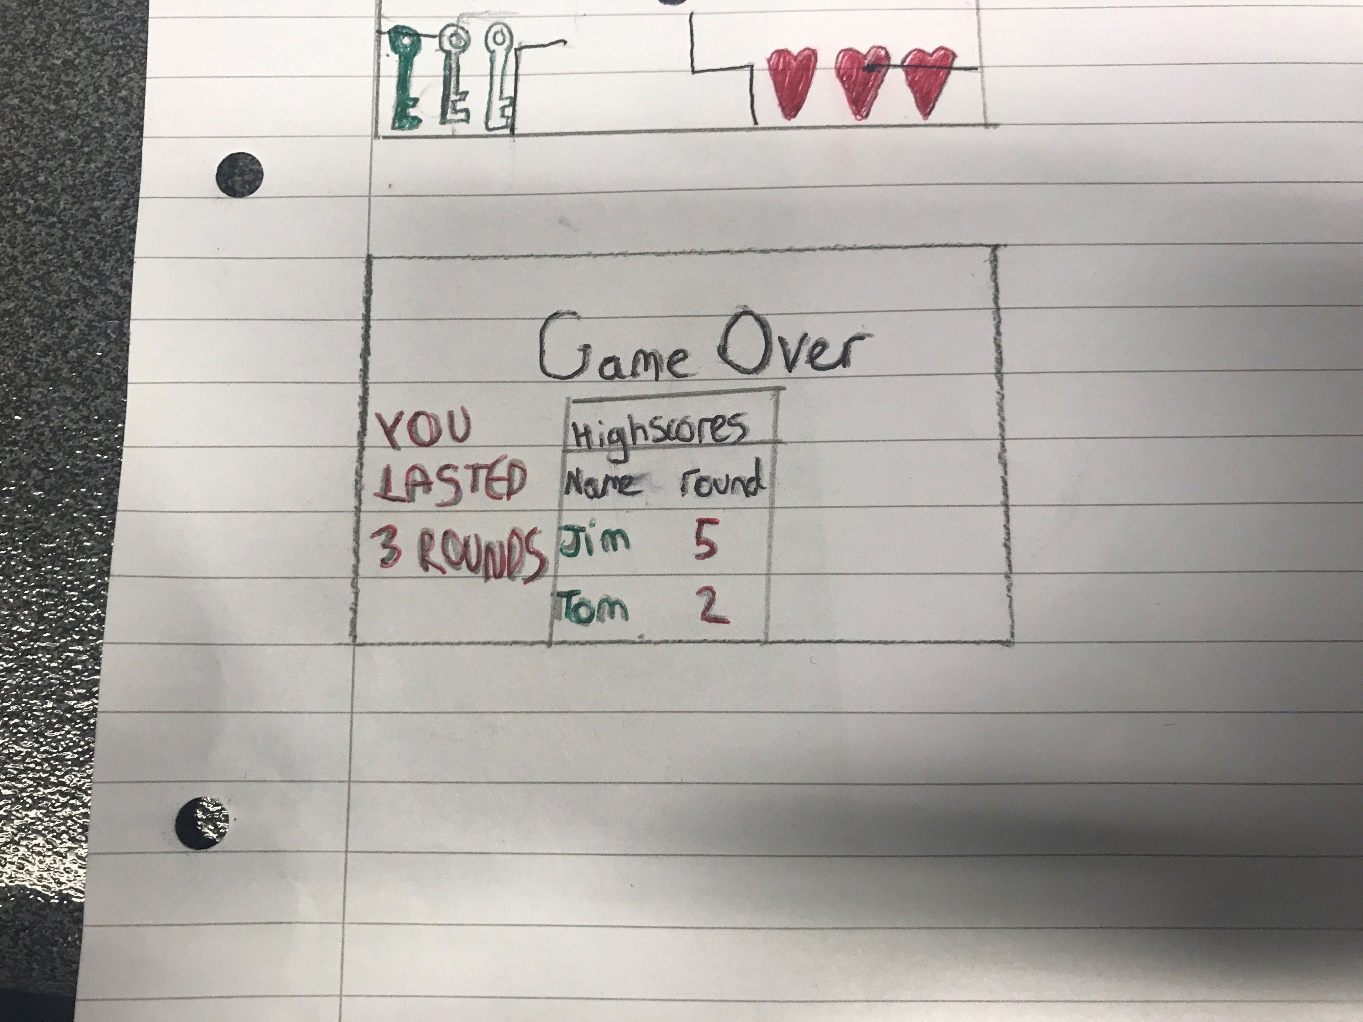 Game Over
YOU
LASTED
3 ROUNDS
Highscores
Name round
Jim 5
Tom 2